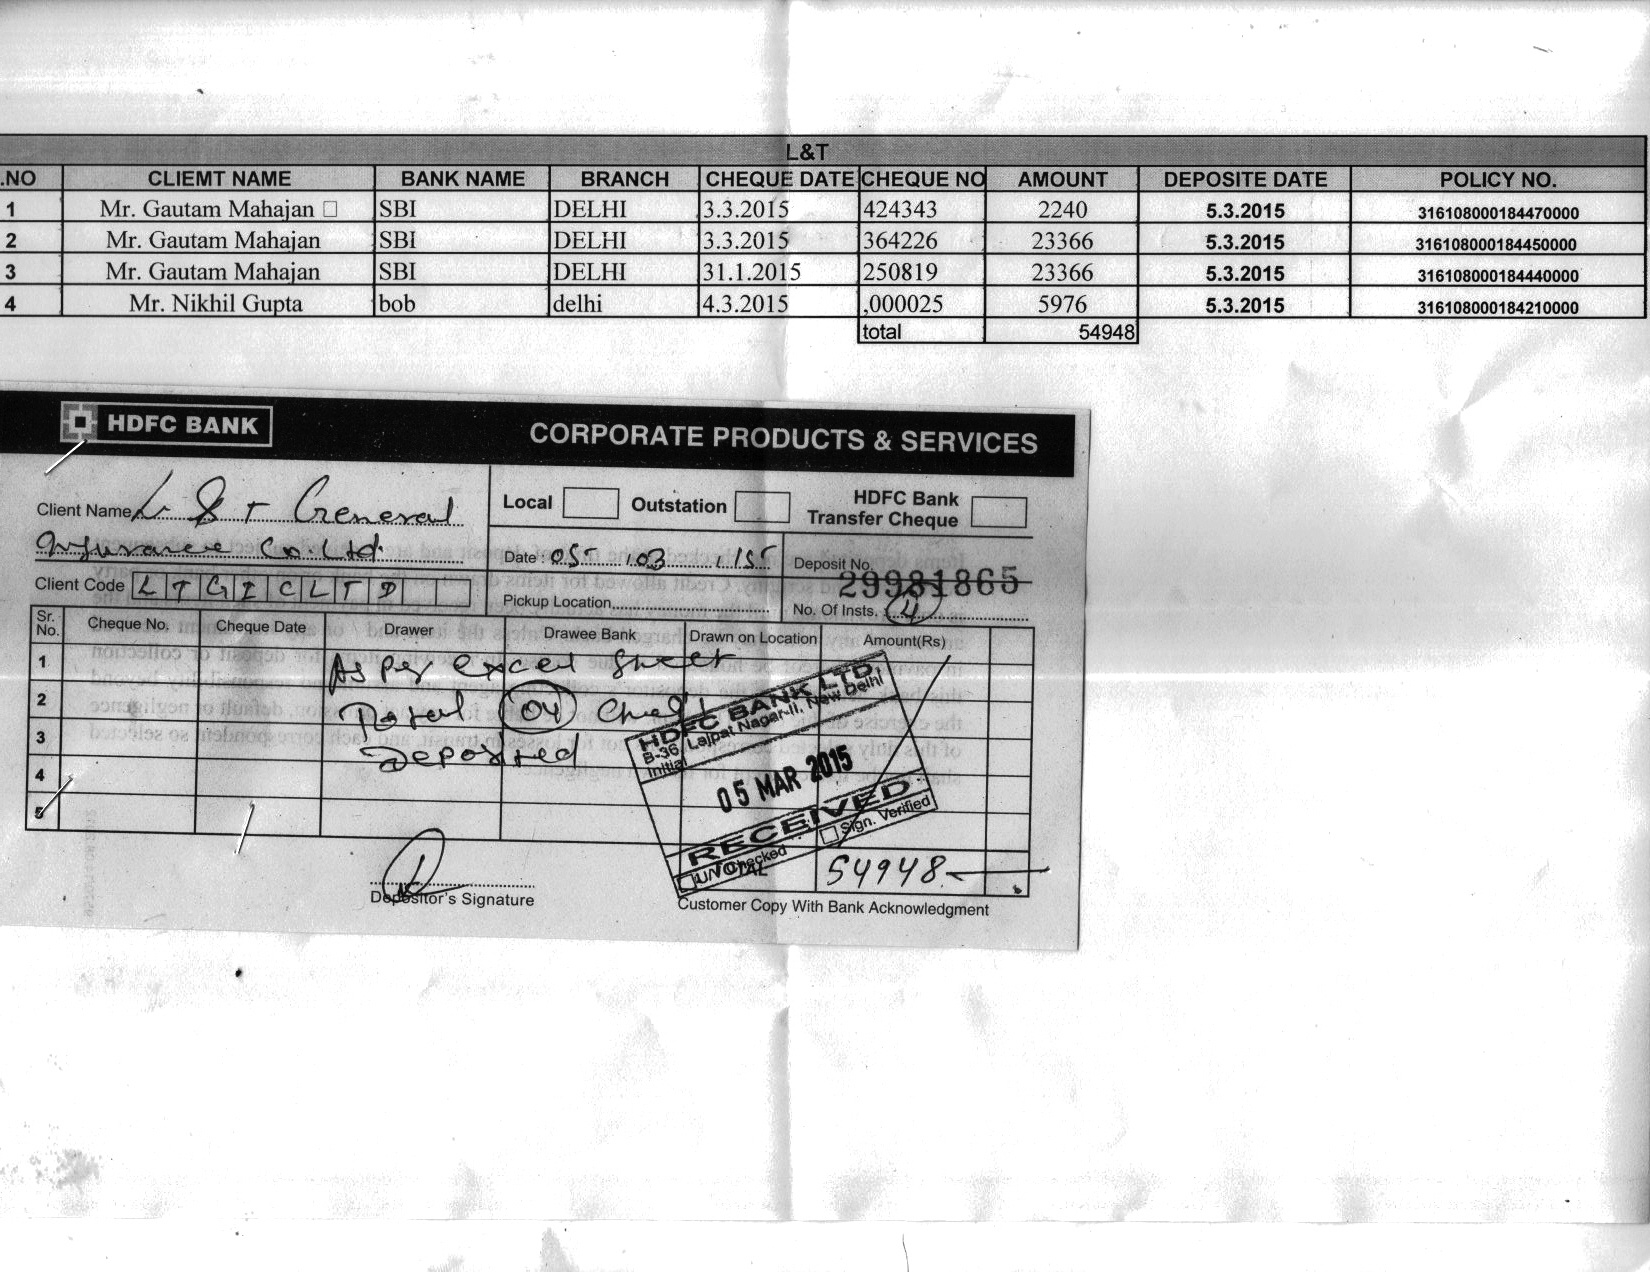 L&T
.NO CLIEMT NAME BANK NAME BRANCH CHEQUE DATE CHEQUE NO AMOUNT DEPOSITE DATE POLICY NO.
1 Mr. Gautam Mahajan SBI DELHI 3.3.2015 424343 2240 5.3.2015 316108000184470000
2 Mr. Gautam Mahajan SBI DELHI 3.3.2015 364226 23366 5.3.2015 316108000184450000
3 Mr. Gautam Mahajan SBI DELHI 31.1.2015 250819 23366 5.3.2015 316108000184440000
4 Mr. Nikhil Gupta bob delhi 4.3.2015 ,000025 5976 5.3.2015 316108000184210000
total 54948
HDFC BANK
CORPORATE PRODUCTS & SERVICES
Client Name L & T General
Insurance Co. Ltd
Client Code L T G I C L T D
Local Outstation HDFC Bank
Transfer Cheque
Date : 05 03 15 Deposit No.
29981865
Pickup Location No. Of Insts. 4
Sr. No. Cheque No. Cheque Date Drawer Drawee Bank Drawn on Location Amount(Rs)
1 As per excel sheet
2 Total 04
3 Deposited
4
5
HDFC BANK LTD.
B-36, Lajpat Nagar-II, New Delhi
Initial
05 MAR 2015
RECEIVED
Sign. Verified
UN Checked
TOTAL
54948
Depositor's Signature
Customer Copy With Bank Acknowledgment